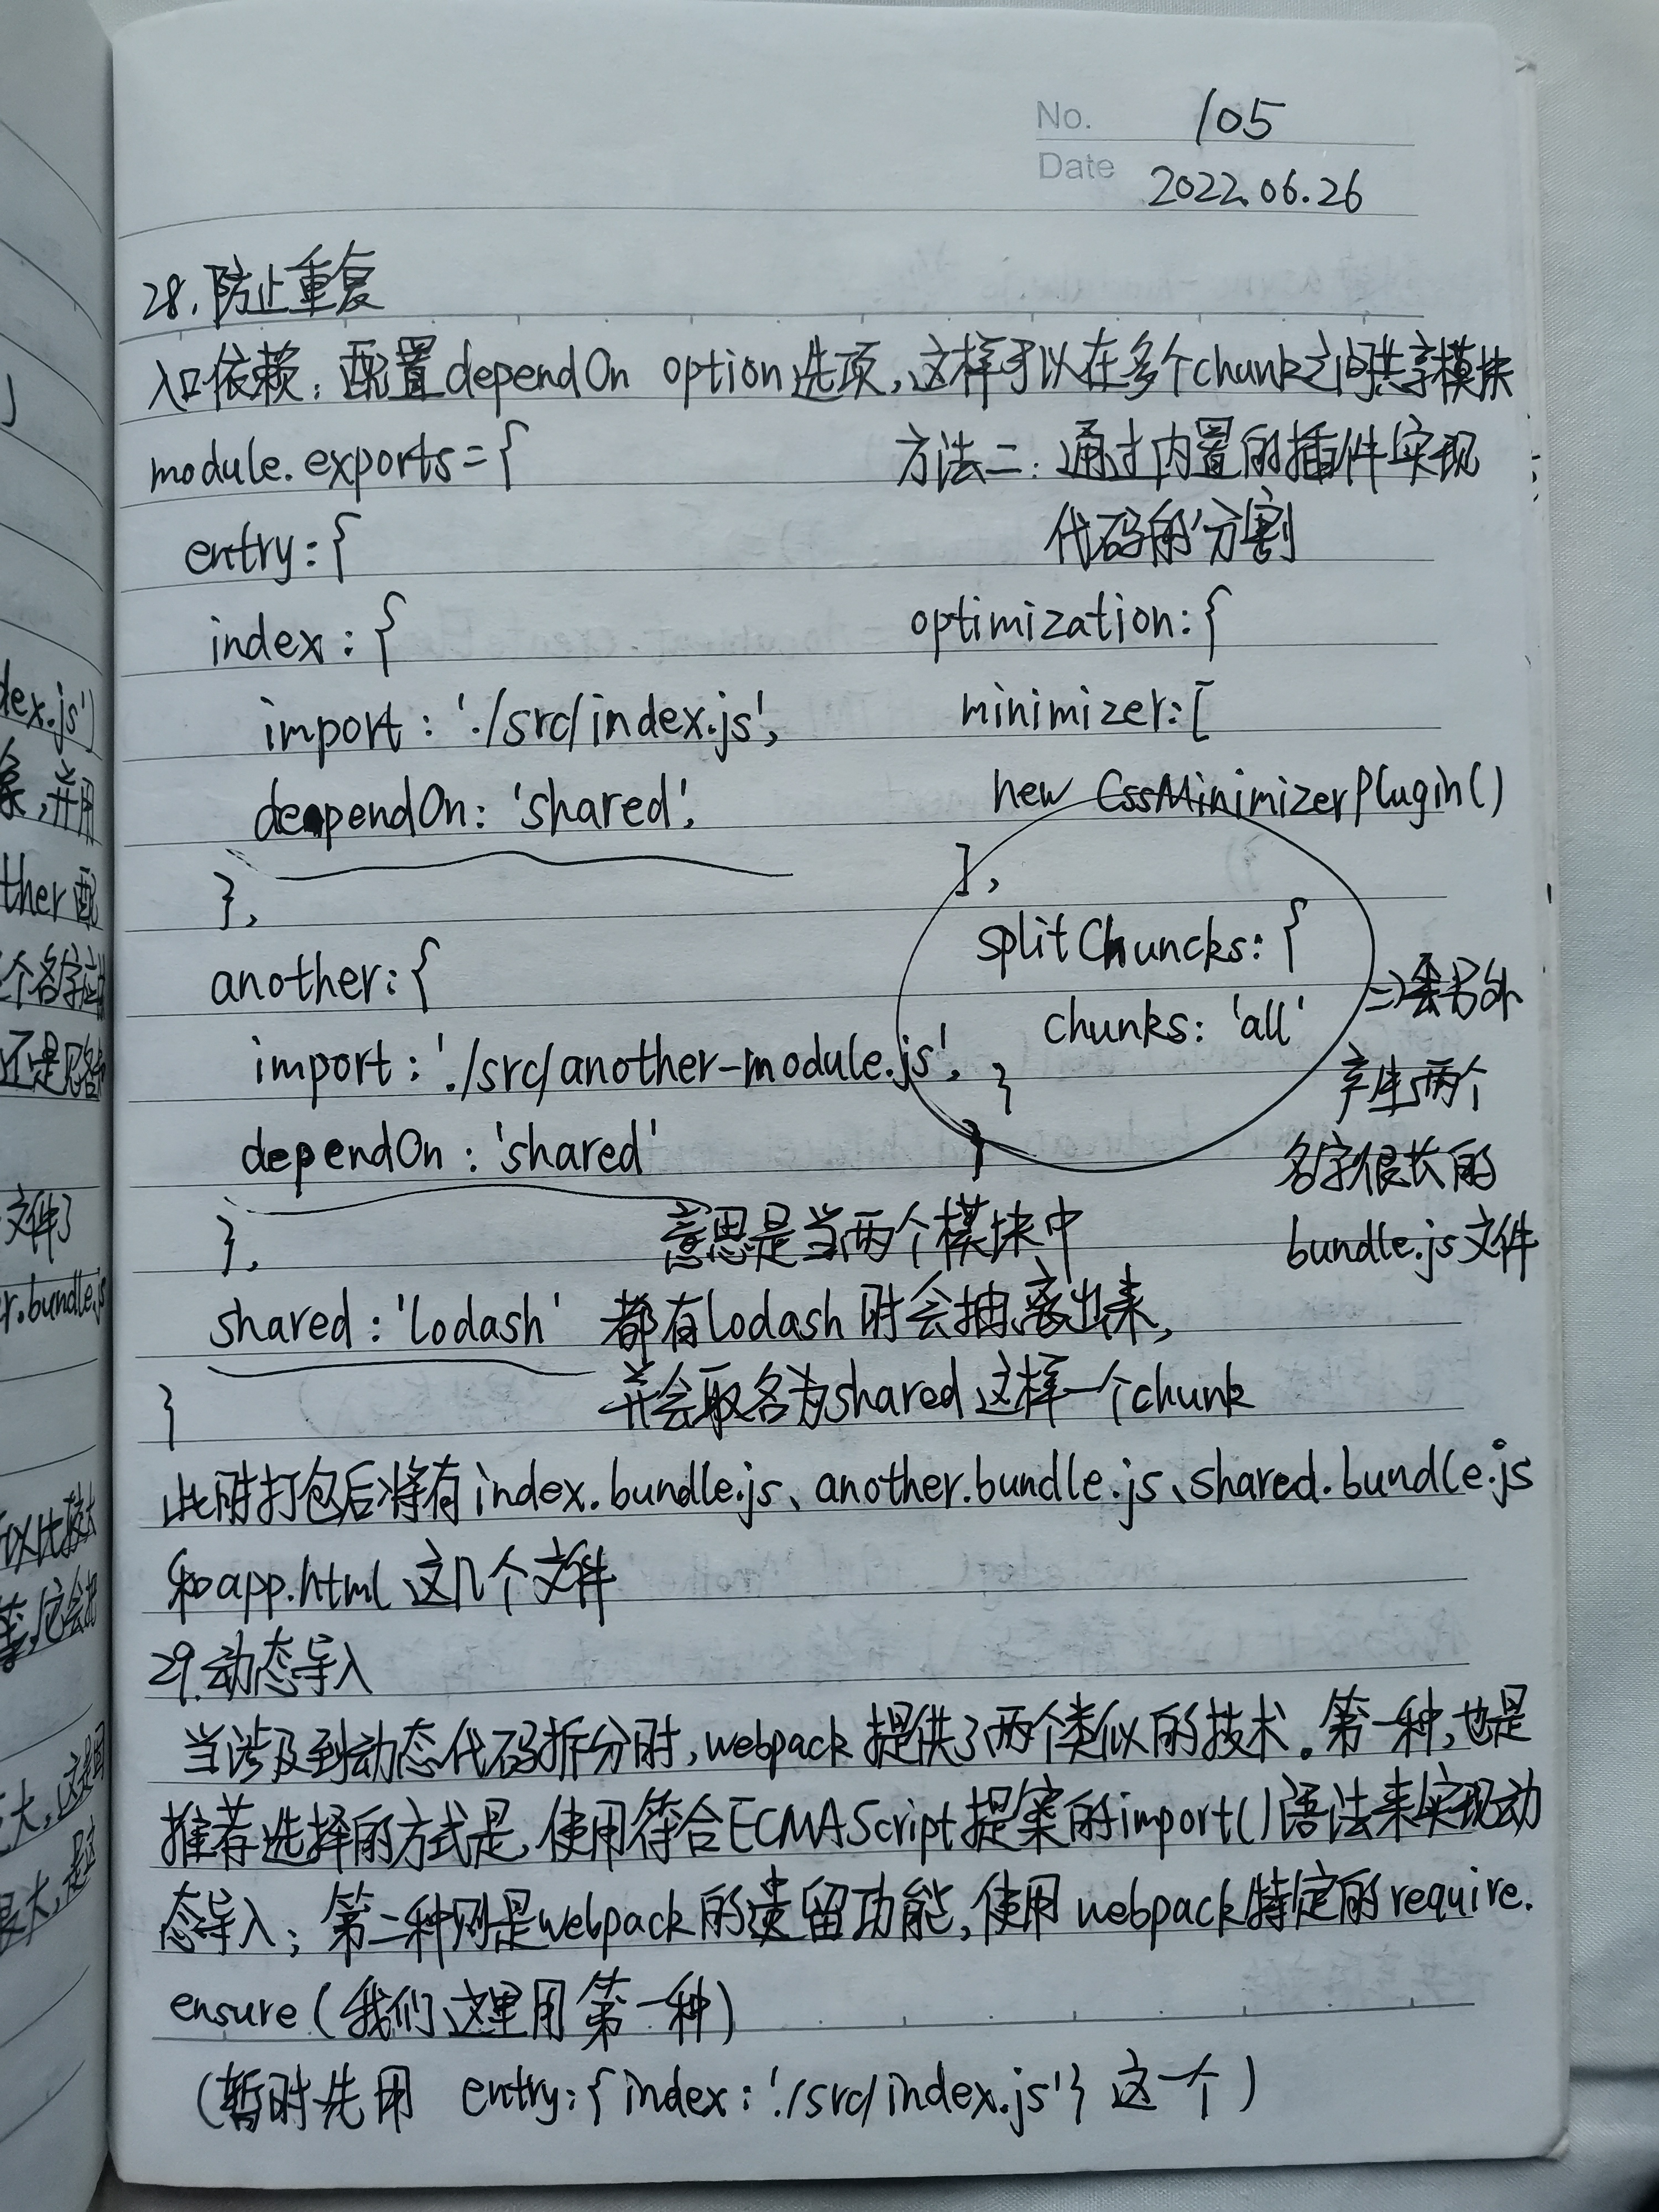 No. 105
Date 2022.06.26
28.防止重复
入口依赖：配置dependOn option选项,这样可以在多个chunk之间共享模块
module.exports={
entry:{
index:{
import:'./src/index.js',
dependOn:'shared',
},
another:{
import:'./src/another-module.js',
dependOn:'shared'
},
shared:'lodash'
}
方法二：通过内置的插件实现
代码的分割
optimization:{
minimizer:[
new CssMinimizerPlugin()
],
splitChuncks:{
chunks:'all'
}
}
=>会另外
产生两个
名字很长的
bundle.js文件
意思是当两个模块中
都有lodash时会抽离出来,
并会取名为shared这样一个chunk
此时打包后将有index.bundle.js、another.bundle.js、shared.bundle.js
和app.html 这几个文件
29.动态导入
当涉及到动态代码拆分时,webpack提供了两个类似的技术。第一种,也是
推荐选择的方式是,使用符合ECMAScript提案的import()语法来实现动
态导入；第二种则是webpack的遗留功能,使用webpack特定的require.
ensure(我们这里用第一种)
(暂时先用 entry:{index:'./src/index.js'}这一个)
dex.js')
,并用
ther配
还是
文件
r.bundle.js